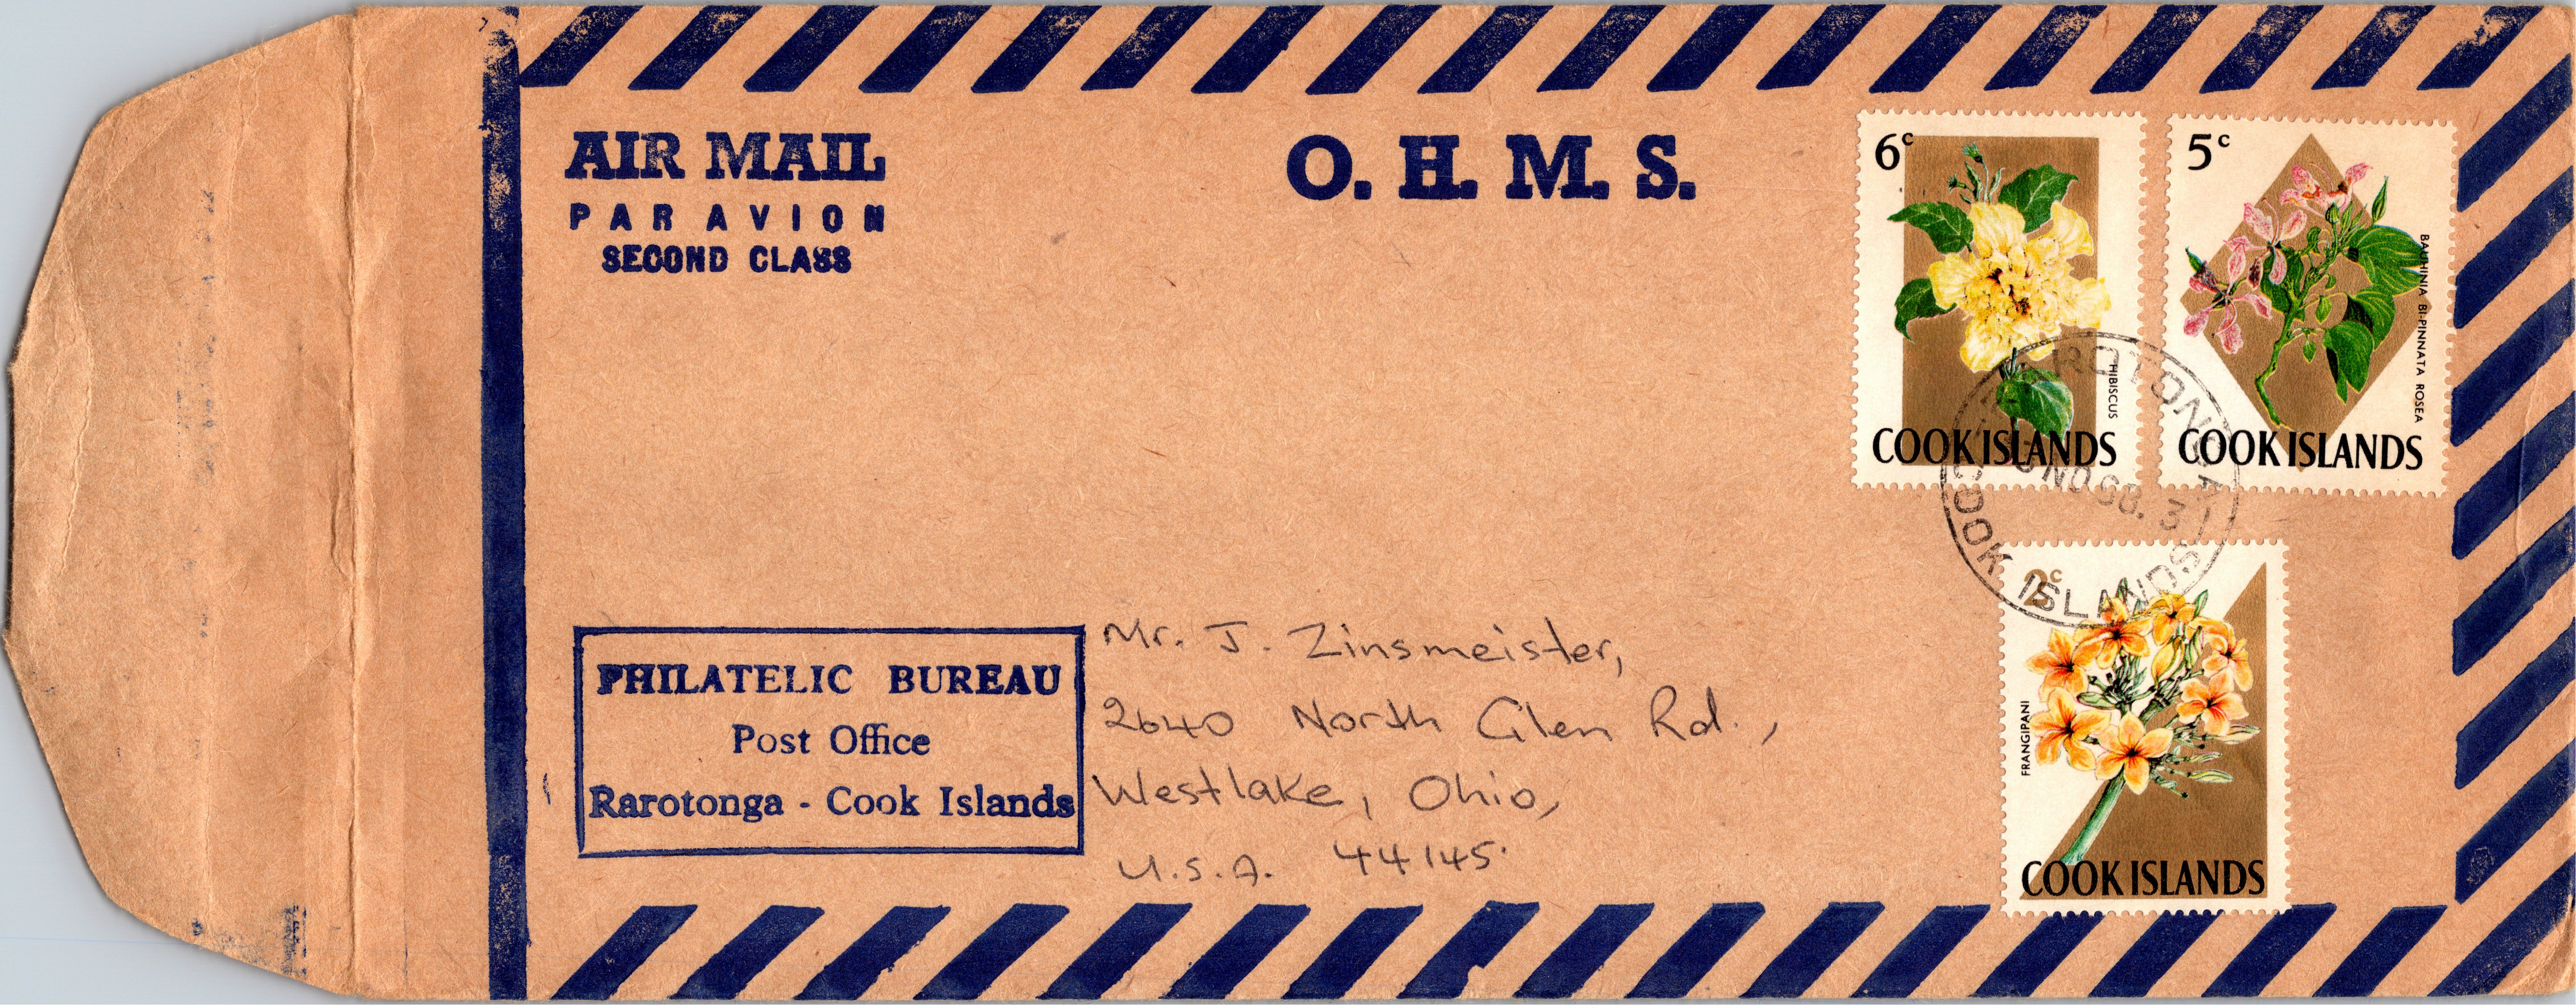 AIR MAIL
PAR AVION
SECOND CLASS
O. H. M. S.
6c
HIBISCUS
COOK ISLANDS
5c
BAUHINIA BI-PINNATA ROSEA
COOK ISLANDS
RAROTONGA
COOK ISLANDS
2c
FRANGIPANI
COOK ISLANDS
PHILATELIC BUREAU
Post Office
Rarotonga - Cook Islands
Mr. J. Zinsmeister,
2640 North Glen Rd.,
Westlake, Ohio,
U.S.A. 44145.